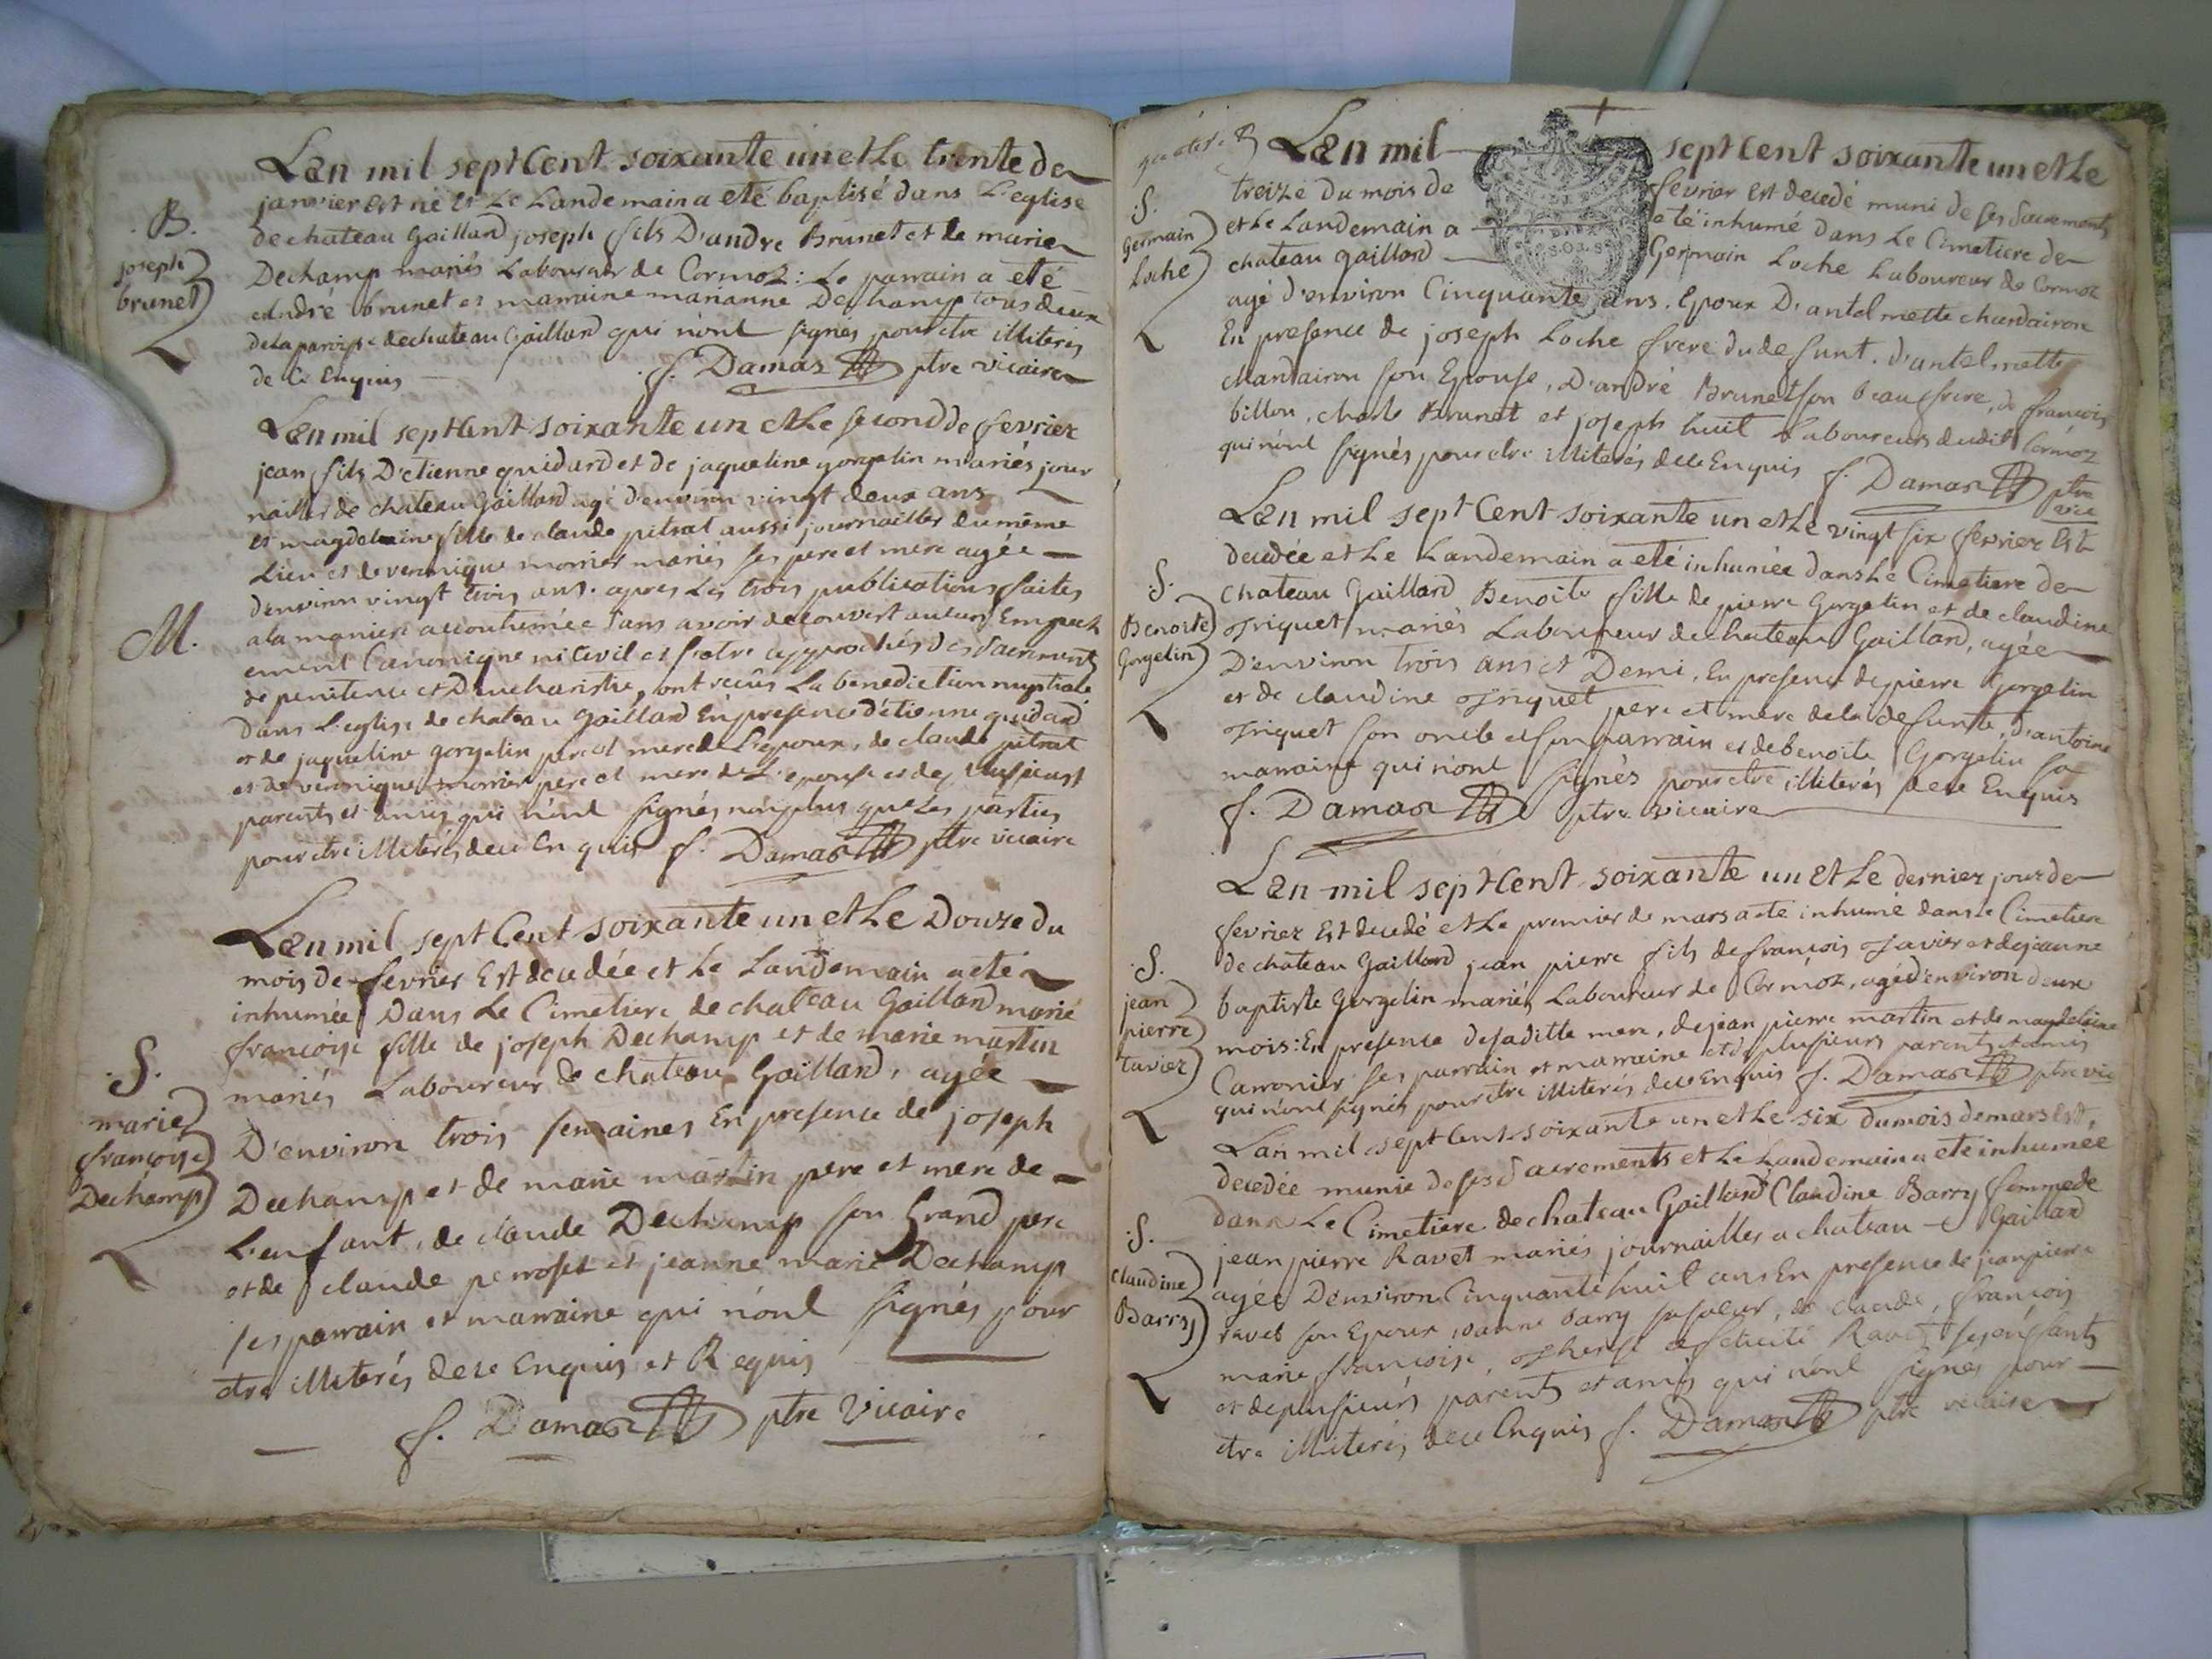 Lan mil sept Cent soixante un et le trente de
janvier est né et le Landemain a eté baptisé dans L'eglise
de chateau Gaillard joseph fils D'andre Brunet et de marie
Dechamp mariés Laboureur de Cormoz: Le parrain a eté
andré brunet et marraine marianne Dechamp tous deux
de la paroisse de chateau Gaillard qui n'ont signés pour etre illiterés
de Ce Enquis f. Damas ptre vicaire
B.
joseph
brunet
Lan mil sept Cent soixante un et Le second de fevrier
jean fils D'etienne quidard et de jaqueline gorgelin mariés jour
nallier de chateau Gaillard agé d'environ vingt deux ans
et magdelaine fille de claude pitrat aussi journallier du même
Lieu et de veronique morrier mariés ses pere et mere agée
d'environ vingt trois ans. apres Les trois publications faites
a la maniere accoutumée sans avoir decouvert aucun Empech
ement Canonique ni Civil et s'etre approchés des Sacrements
de penitence et D'eucharistie, ont reçûs La benediction nuptiale
Dans L'eglise de chateau Gaillard En presence d'etienne quidard
et de jaqueline gorgelin pere et mere de L'epoux, de claude pitrat
et de veronique morrier pere et mere de L'epouse et de plusieurs
parents et amis qui n'ont signés non plus que Les parties
pour etre illiterés de ce Enquis f. Damas ptre vicaire
M.
Lan mil sept Cent soixante un et Le Douze du
mois de fevrier Est decedée et Le Landemain a eté
inhumée Dans Le Cimetiere de chateau Gaillard marie
françoise fille de joseph Dechamp et de marie martin
mariés Laboureur de chateau Gaillard, agée
D'environ trois semaines En presence de joseph
Dechamp et de marie martin pere et mere de
L'enfant, de claude Dechamp son Grand pere
et de claude perroset et jeanne marie Dechamp
ses parrain et marraine qui n'ont signés pour
etre illiterés de ce Enquis et Requis
f. Damas ptre Vicaire
S.
marie
françoise
Dechamp
Lan mil sept Cent soixante un et Le
treize du mois de fevrier Est decedé muni de ses Sacrements
et Le Landemain a eté inhumé dans Le Cimetiere de
chateau gaillard Germain Loche Laboureur de Cormoz
agé d'environ Cinquante ans. Epoux D'antelmette chardairon
En presence de joseph Loche frere du defunt. d'antelmette
chardairon son Epouse, D'andré Brunet son beau frere, de françois
billon, charle Brunet et joseph huit Laboureurs dudit Cormoz
qui n'ont signés pour etre illiterés de ce Enquis f. Damas ptre
vic
S.
Germain
Loche
Lan mil sept Cent soixante un et Le vingt six fevrier Est
decedée et Le Landemain a eté inhumée dans Le Cimetiere de
chateau Gaillard Benoite fille de pierre Gorgelin et de claudine
Triquet mariés Laboureur de chateau Gaillard, agée
D'environ trois ans et Demi, En presence de pierre Gorgelin
et de claudine Triquet pere et mere de la defunte, d'antoine
Triquet son oncle et son parrain et de benoite Gorgelin sa
marraine qui n'ont signés pour etre illiterés de ce Enquis
f. Damas ptre vicaire
S.
Benoite
Gorgelin
Lan mil sept Cent soixante un et Le dernier jour de
fevrier Est decedé et Le premier de mars a eté inhumé dans le Cimetiere
de chateau Gaillard jean pierre fils de françois Tavier et de jeanne
baptiste Gorgelin mariés Laboureur de Cormoz, agé d'environ deux
mois: En presence de sa ditte mere, de jean pierre martin et de magdelaine
Carronier ses parrain et marraine et de plusieurs parents et amis
qui n'ont signés pour etre illiterés de ce Enquis f. Damas ptre vic
S.
jean
pierre
tavier
Lan mil sept Cent soixante un et Le six du mois de mars Est,
decedée munie de ses Sacrements et Le Landemain a eté inhumée
dans Le Cimetiere de chateau Gaillard Claudine Barry femme de
jean pierre Ravet mariés journallier a chateau Gaillard
agée D'environ Cinquante huit ans En presence de jean pierre
ravet son Epoux, danne barry sa soeur, de claude, françois
marie françoise, Therese et felicité Ravet ses enfants
et de plusieurs parents et amis qui n'ont signés pour
etre illiterés de ce Enquis f. Damas ptre vicaire
S.
Claudine
Barry